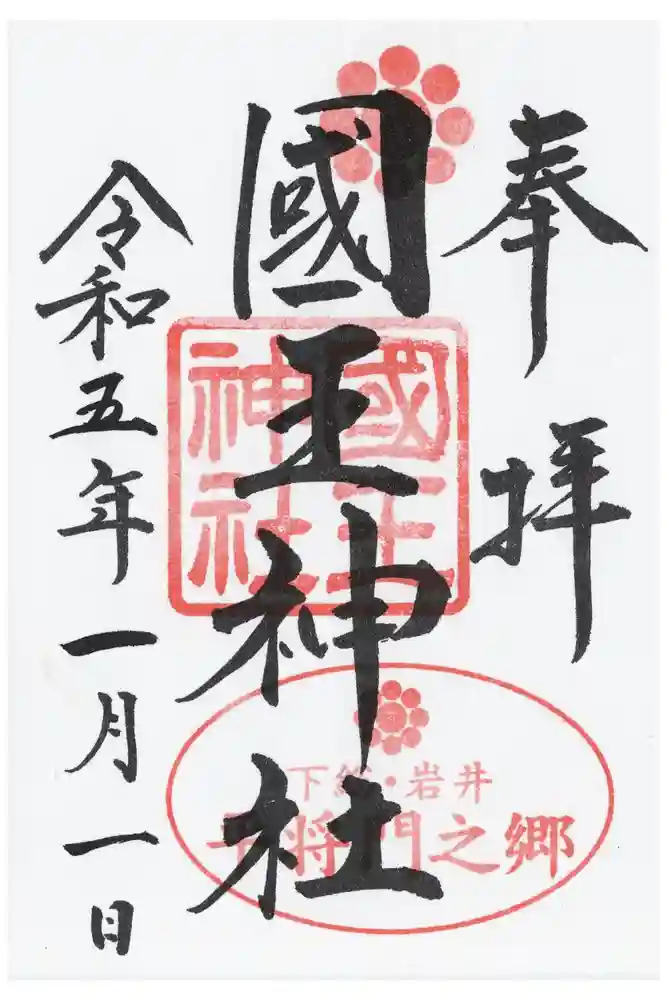 奉拝
國王神社
國王神社
下総・岩井
平将門之郷
令和五年一月一日